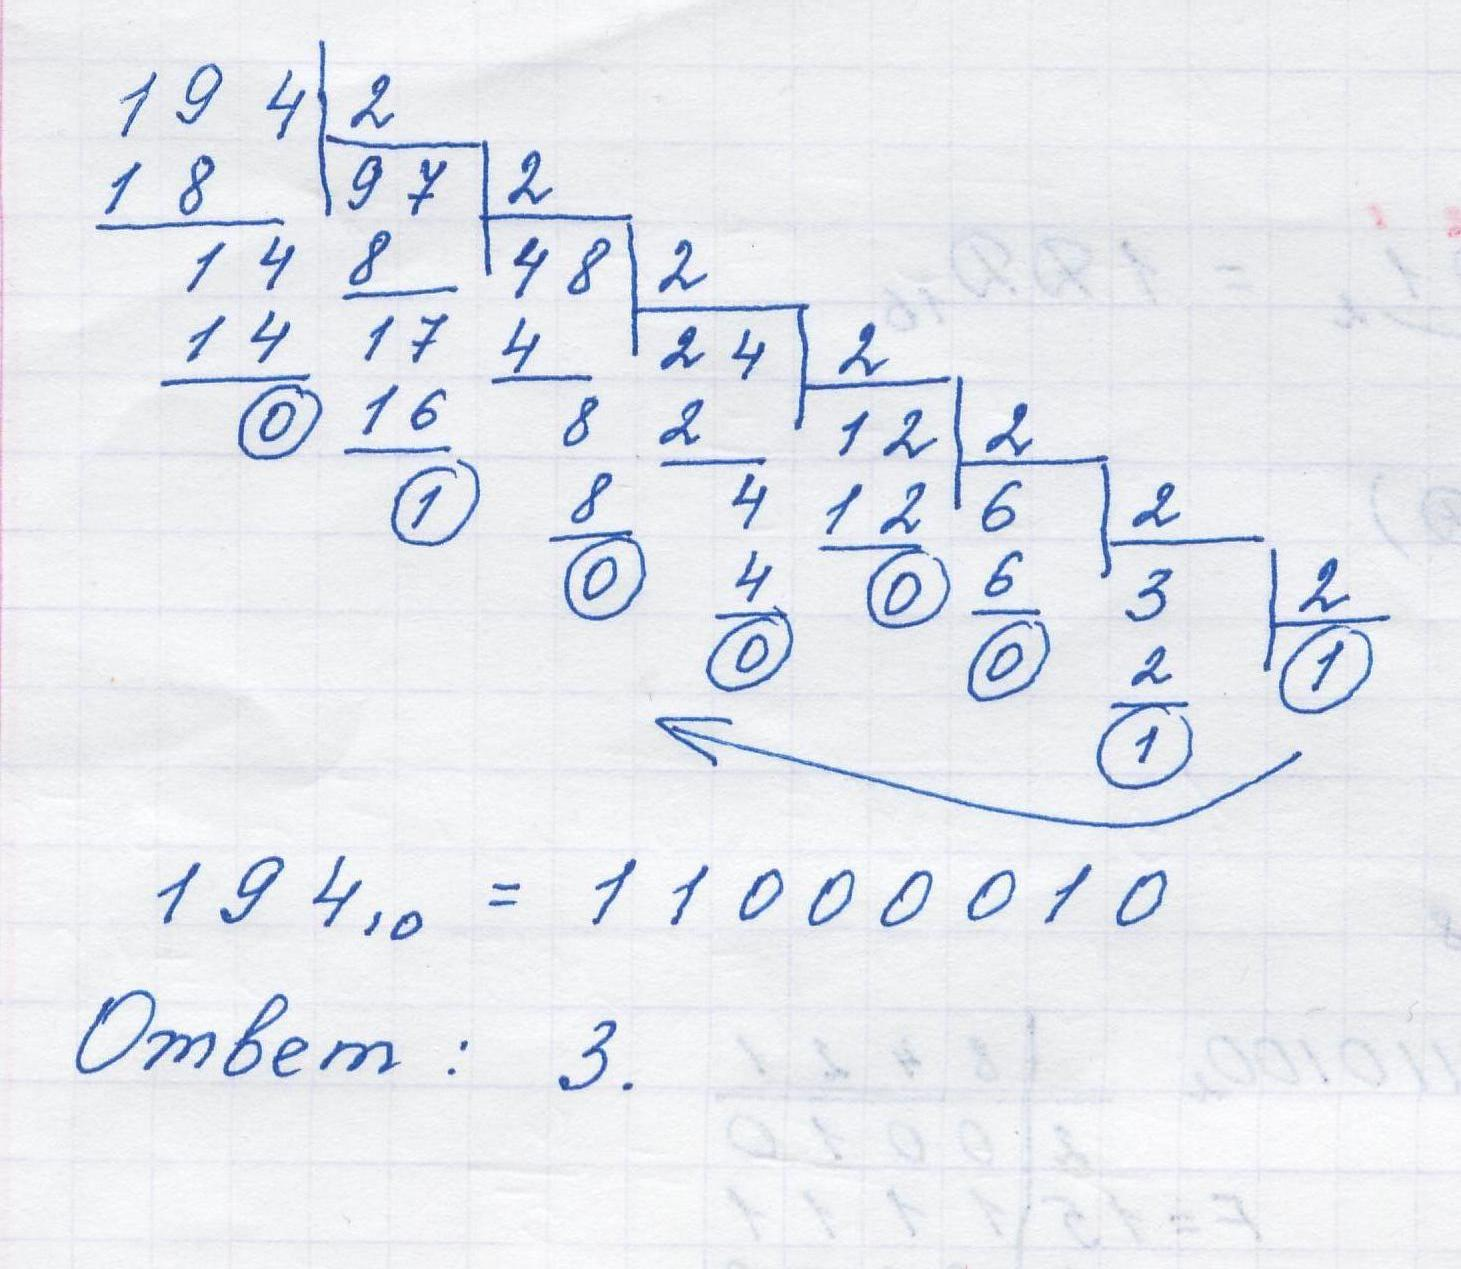 194 2
18 97 2
14 8 48 2
14 17 4 24 2
0 16 8 2 12 2
1 8 4 12 6 2
0 4 0 6 3 2
0 0 2 1
1
194₁₀ = 11000010
Ответ: 3.